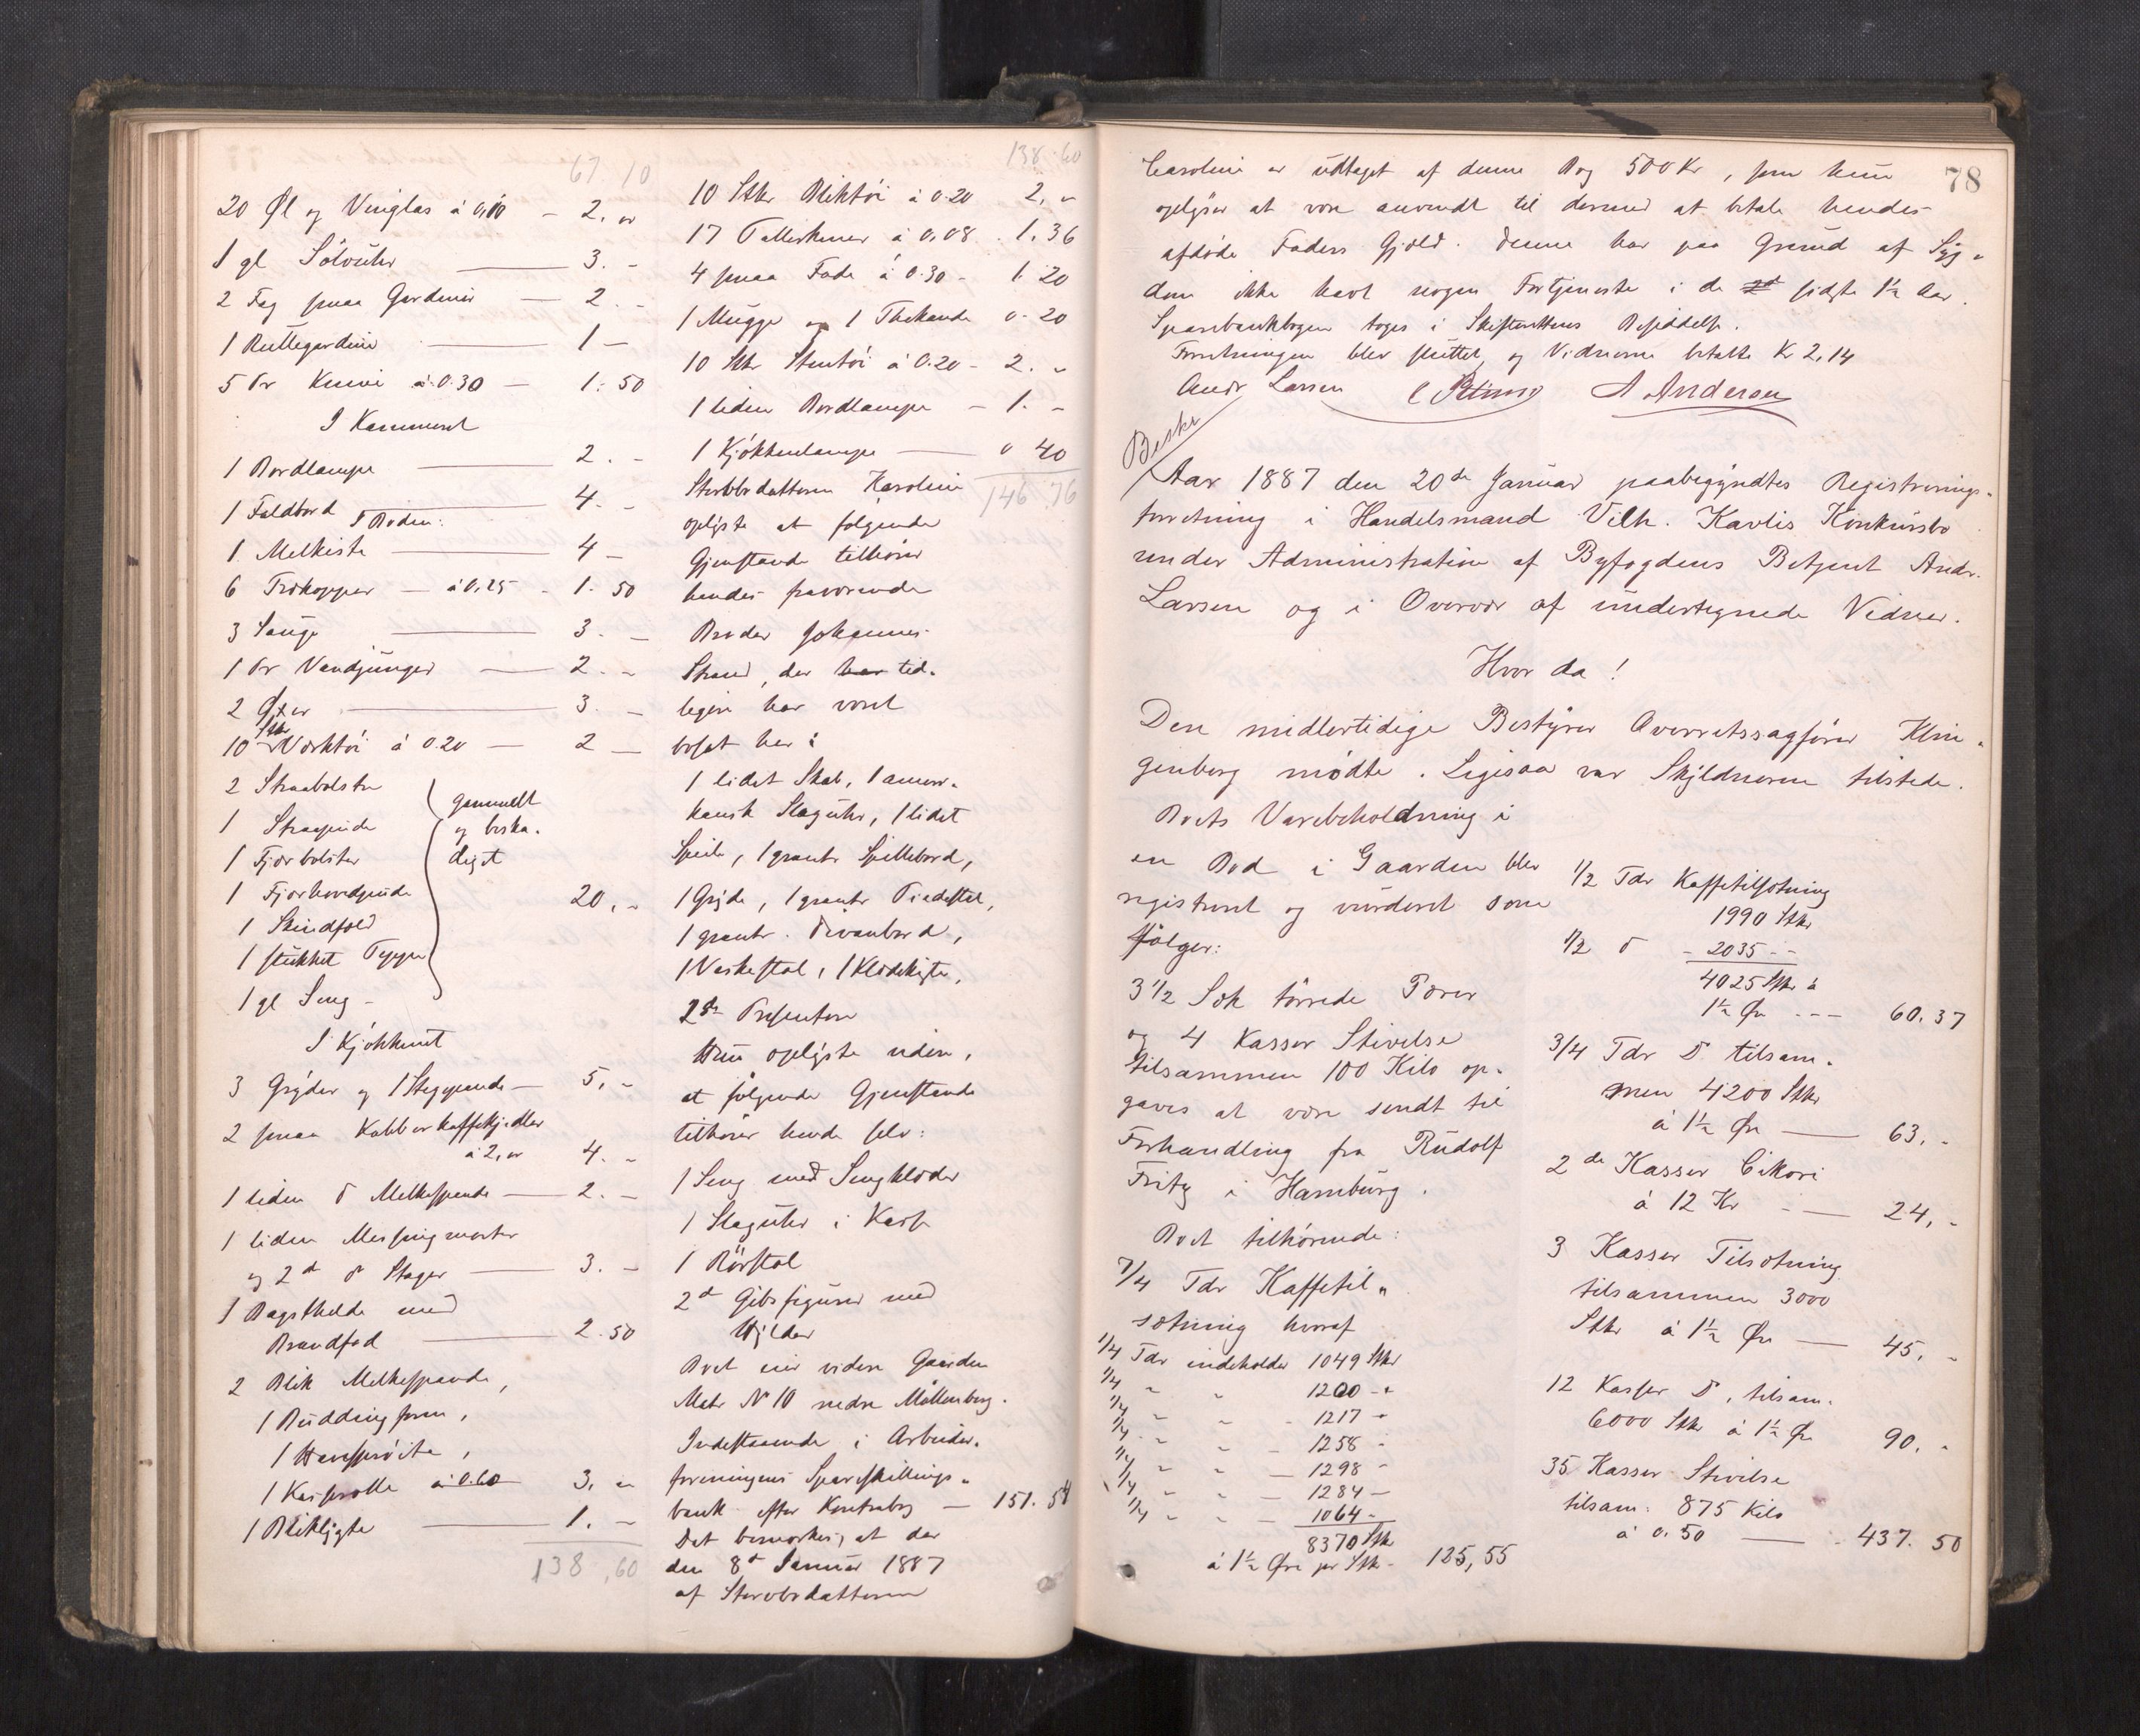 67.10
20 Øl og Vinglas à 0,10 — 2, "
1 gl Sölvuhr — 3. -
2 Fag smaa Gardiner — 2. -
1 Rullegardin — 1 -
5 Pr Knive à 0.30 — 1. 50
I Kammeret
1 Bordlampe — 2. -
1 Foldbord — 4. -
I Boden:
1 Melkiste — 4 -
6 Trækopper — à 0,25 - 1. 50
3 Senge — 3. -
1 Pr Vandspringer — 2. -
2 Øxer — 3. -
10 Stkr Værktöi à 0.20 — 2 -
2 Straabolstre
1 Straapude
1 Fjærbolster
1 Fjærhovedpude
1 Skindfeld
1 stukket Teppe
1 gl Seng -
gammelt
og beska-
diget
20, -
I Kjøkkenet
3 Gryder og 1 Stegepande — 5, -
2 smaa Kobberkaffekjedler
à 2, " 4. -
1 liden do Melkespande — 2. -
1 liden Messingmorter
og 2de do Stager — 3. -
1 Bagsthelde med
Brandfad — 2.50
2 Blik Melkespande,
1 Buddingform,
1 Havesprøite,
1 Kasserolle à 0.60 3, "
1 Bliklygte — 1. -
138,60
138.60
10 Stkr Bliktöi à 0.20 2, "
17 Tallerkener à 0,08 . 1.36
4 smaa Fade à 0.30 - 1. 20
1 Mugge og 1 Thekande 0. 20
10 Stkr Stentöi à 0.20 - 2. "
1 liden Bordlampe — 1. -
1 Kjökkenlampe — 0 40
146.76
Sterbbodatteren Karoline
oplyste at følgende
Gjenstande tilhører
hendes fraværende
Broder Johannes
Strand, der har tid-
ligere har været
bosat her:
1 lidet Skab, 1 ameri-
kansk Slaguhr, 1 lidet
Speil, 1 grantr Spillebord,
1 Gryde, 1 grantr Piedestal,
1 grantr. Divanbord,
1 Vaskestol, 1 Klædekiste,
2de Presenter
Hun oplyste videre,
at følgende Gjenstande
tilhører hende selv:
1 Seng med Sengklæder
1 Slaguhr i Kasse
1 Rörstol
2de Gibsfigurer med
Hylder
Boet eier videre Gaarden
Matr No 10 nedre Møllenberg.
Indestaaende i Arbeider-
foreningens Spareskillings-
bank efter Kontrabog — 151.54
Det bemærkes, at der
den 8de Januar 1887
af Stervbodatteren
78
Caroline er udtaget af denne Bog 500 Kr, som hun
oplyser at være anvendt til dermed at betale hendes
afdøde Faders Gjæld. Denne har paa Grund af Syg-
dom ikke havt nogen Fortjeneste i de sidste 1½ Aar.
Sparebankbogen toges i Skifterettens Besiddelse.
Forretningen blev sluttet, og Vidnerne betalte Kr 2,14
Andr Larsen A Andersen
Beskr
Aar 1887 den 20de Januar paabegyndtes Registrerings-
forretning i Handelsmand Vilh. Kavlis Konkursbo
under Administration af Byfogdens Betjent Andr.
Larsen og i Overvær af undertegnede Vidner.
Hvor da!
Den midlertidige Bestyrer Overretssagfører Klin-
genberg mødte. Ligesaa var Skyldneren tilstede.
Boets Varebeholdning i
en Bod i Gaarden blev
registreret og vurderet som
følger:
3 1/2 Sæk tørrede Pærer
og 4 Kasser Stivelse
tilsammen 100 Kilo op-
gaves at være sendt til
Forhandling fra Rudolf
Fritz i Hamburg.
Boet tilhørende:
7/4 Tdr Kaffetil-
sætning hvoraf
1/4 Tdr indeholder 1049 Stkr
1/4 " " 1200 - "
1/4 " " - 1217 -
1/4 " " - 1258 -
1/4 " " - 1298 -
1/4 " " - 1284 -
1/4 " " - 1064 -
8370 Stkr
à 1½ Øre pr Stk - 125,55
1/2 Tdr Kaffetilsætning
1990 Stkr
1/2 do - 2035 - -
4025 Stkr à
1½ Øre - - - 60.37
3/4 Tdr do tilsam-
men 4200 Stkr
à 1½ Øre — 63, -
2de Kasser Cikori
à 12 Kr - — 24, -
3 Kasser Tilsætning
tilsammen 3000
Stkr à 1½ Øre — 45, -
12 Kasser do, tilsam.
6000 Stkr à 1½ Øre 90. -
35 Kasser Stivelse
tilsam: 875 Kilo
à 0.50 — 437.50